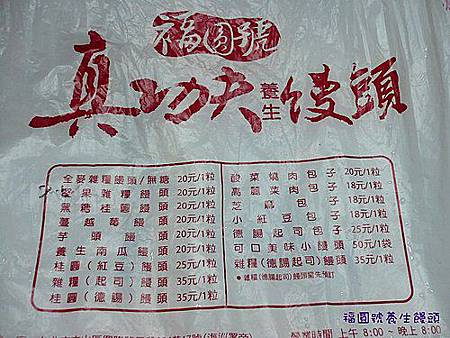 福圓號
真功夫養生饅頭
全麥雜糧饅頭/無糖 20元/1粒
堅果雜糧饅頭 20元/1粒
蔗糖桂圓饅頭 20元/1粒
蔓越莓饅頭 20元/1粒
芋頭饅頭 20元/1粒
養生南瓜饅頭 20元/1粒
桂圓(紅豆)饅頭 25元/1粒
雜糧(起司)饅頭 35元/1粒
桂圓(德腸)饅頭 35元/1粒
酸菜燒肉包子 20元/1粒
高麗菜肉包子 18元/1粒
芝麻包子 18元/1粒
小紅豆包子 18元/1粒
德腸起司包子 25元/1粒
可口美味小饅頭 50元/1袋
雜糧(德腸起司)饅頭 35元/1粒
●雜糧(德腸起司)饅頭需先預訂
營業時間 上午 8:00~晚上 8:00
福圓號養生饅頭